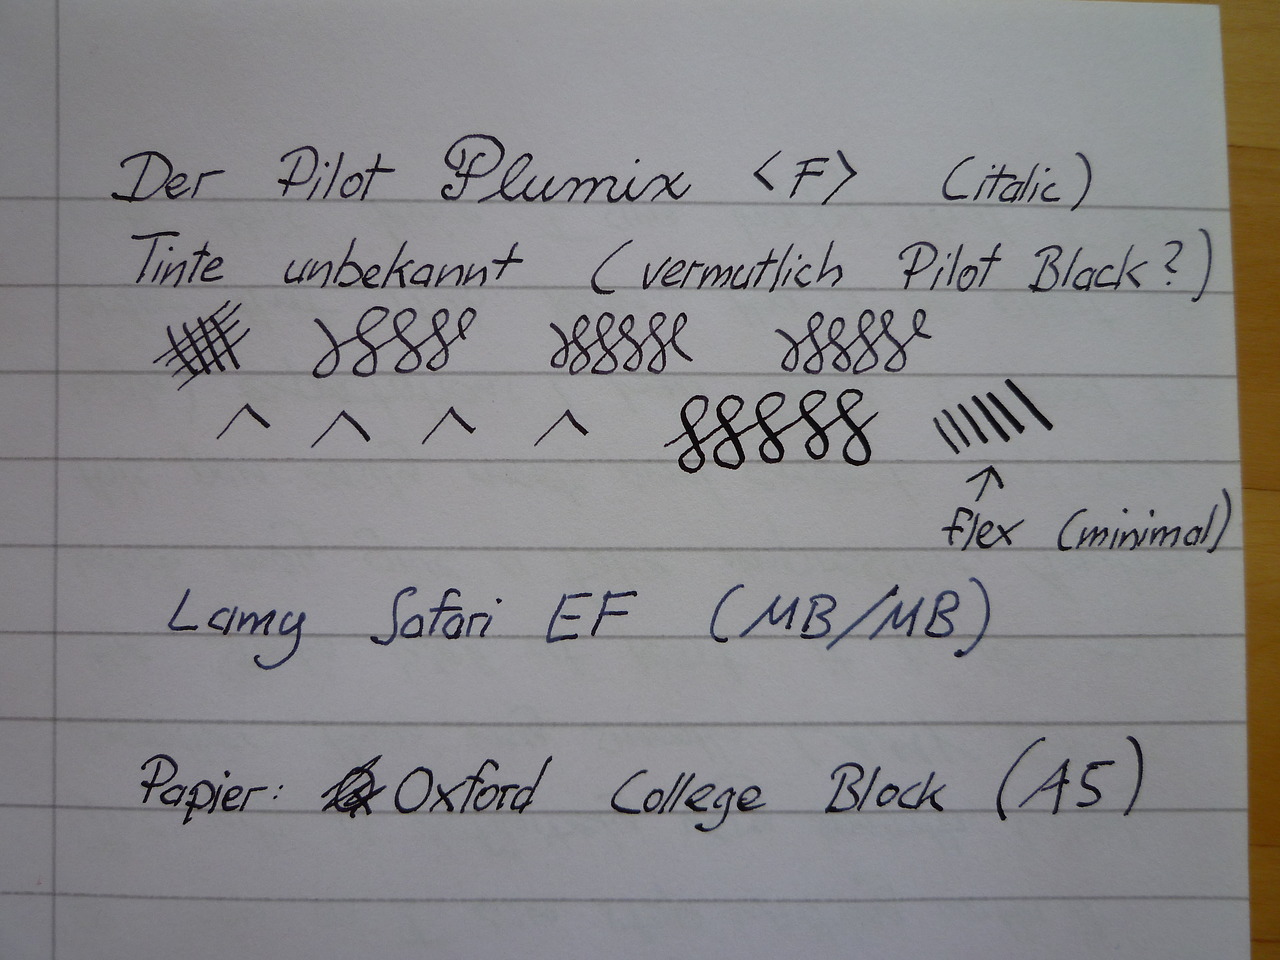 Der Pilot Plumix <F> (italic)
Tinte unbekannt (vermutlich Pilot Black?)
flex (minimal)
Lamy Safari EF (MB/MB)
Papier: Oxford College Block (A5)